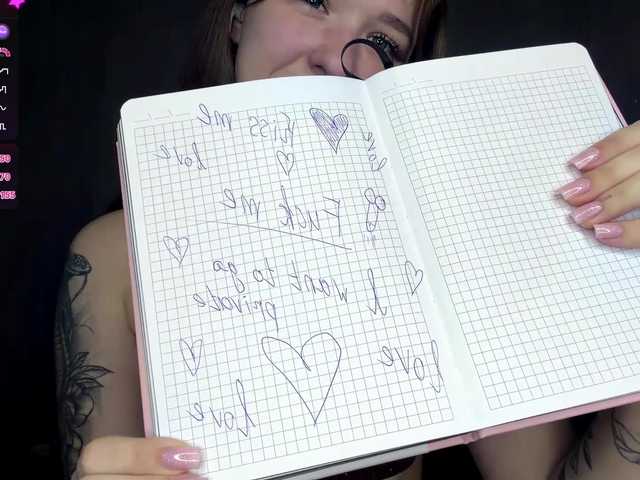 Kiss me
love
love
Fuck me
I want to go
private
love
love
50
70
155